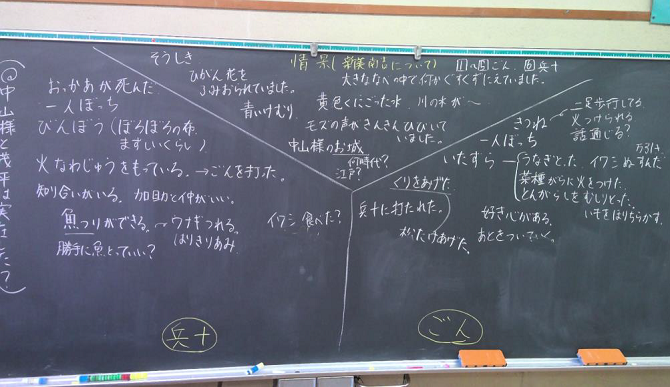 そうしき
ひがん花を
ふみおられていました。
青いけむり
情景
大きななべの中で何かぐずぐずにえていました。
黄色くにごった水
川の水が〜
モズの声がきんきんひびいて
いました。
中山様のお城
何時代?
江戸?
おっかあが死んだ
一人ぼっち
びんぼう(ぼろぼろの布、
ますいくらし)
火なわじゅうをもっている。→ごんを打った。
知り合いがいる。加助と仲がいい。
魚つりができる。→ウナギつれる。
はりきりあみ
勝手に魚とっていい?
イワシ食べた?
兵十
きつね
二足歩行してる
火つけられる
話通じる?
一人ぼっち
いたずら
うなぎとった
イワシぬすんだ
万引き
菜種がらに火をつけた。
とんがらしをむしりとった。
いもをほりちらかす。
くりをあげた
兵十に打たれた。
松たけあげた。
好き心がある。
あとをついていく。
ごん